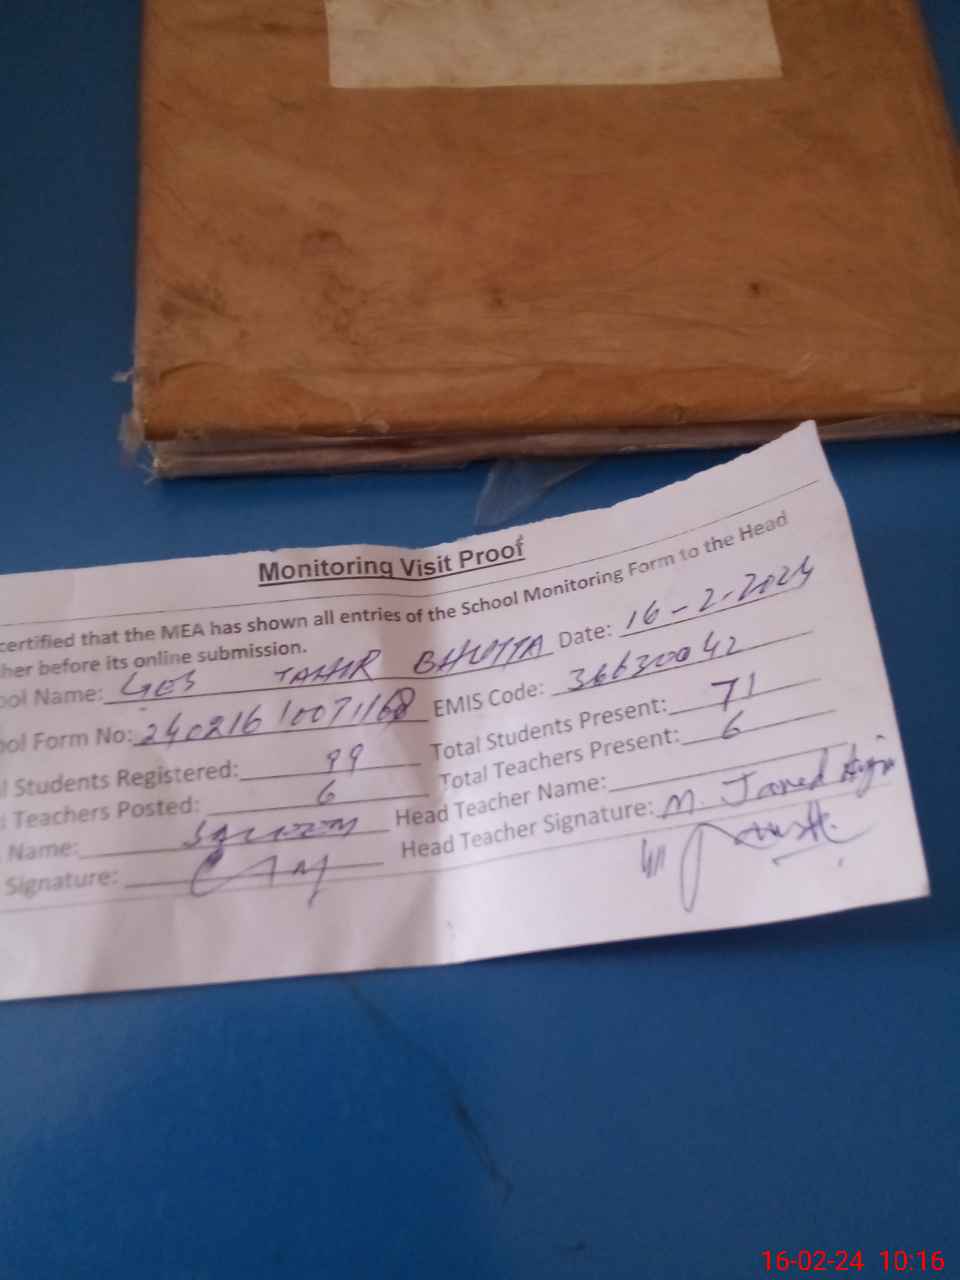 Monitoring Visit Proof
certified that the MEA has shown all entries of the School Monitoring Form to the Head
her before its online submission.
ool Name: GES TAHIR BHUTTA Date: 16-2-2024
ool Form No: EMIS Code: 36630042
l Students Registered: 99 Total Students Present: 71
Teachers Posted: 6 Total Teachers Present: 6
Name: Head Teacher Name:
Signature: Head Teacher Signature: M. Javed
16-02-24 10:16